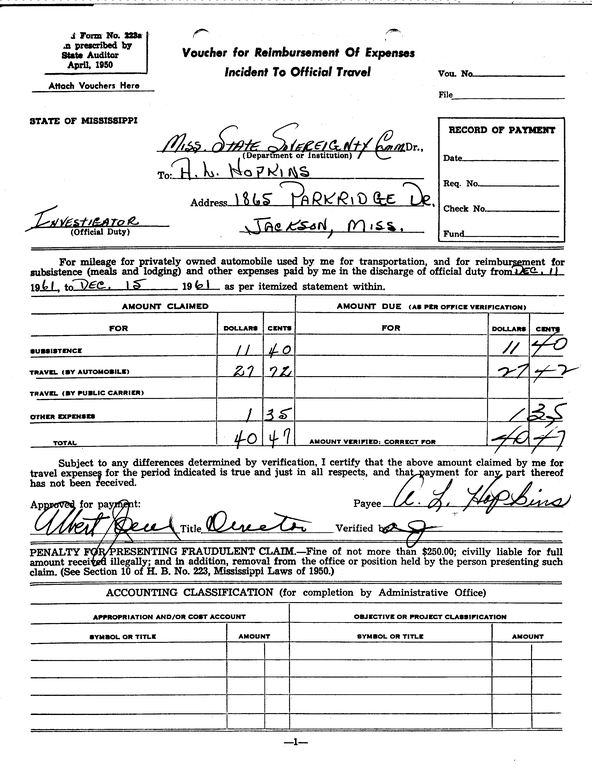 Form No. 223a
prescribed by
State Auditor
April, 1950
Attach Vouchers Here
Voucher for Reimbursement Of Expenses
Incident To Official Travel
Vou. No.
File
STATE OF MISSISSIPPI
Miss. State Sovereignty Comm Dr.,
(Department or Institution)
To: A. L. Hopkins
Address 1865 Parkridge Dr.
Jackson, Miss.
Investigator
(Official Duty)
RECORD OF PAYMENT
Date
Req. No.
Check No.
Fund
For mileage for privately owned automobile used by me for transportation, and for reimbursement for
subsistence (meals and lodging) and other expenses paid by me in the discharge of official duty from Dec. 11
1961, to Dec. 15 1961 as per itemized statement within.
AMOUNT CLAIMED AMOUNT DUE (AS PER OFFICE VERIFICATION)
FOR DOLLARS CENTS FOR DOLLARS CENTS
SUBSISTENCE 11 40 11 40
TRAVEL (BY AUTOMOBILE) 27 72 27 42
TRAVEL (BY PUBLIC CARRIER)
OTHER EXPENSES 1 35 1 35
TOTAL 40 47 AMOUNT VERIFIED: CORRECT FOR 40 47
Subject to any differences determined by verification, I certify that the above amount claimed by me for
travel expenses for the period indicated is true and just in all respects, and that payment for any part thereof
has not been received.
Approved for payment: Payee A. L. Hopkins
Albert Title Director Verified
PENALTY FOR PRESENTING FRAUDULENT CLAIM.—Fine of not more than $250.00; civilly liable for full
amount received illegally; and in addition, removal from the office or position held by the person presenting such
claim. (See Section 10 of H. B. No. 223, Mississippi Laws of 1950.)
ACCOUNTING CLASSIFICATION (for completion by Administrative Office)
APPROPRIATION AND/OR COST ACCOUNT OBJECTIVE OR PROJECT CLASSIFICATION
SYMBOL OR TITLE AMOUNT SYMBOL OR TITLE AMOUNT
—1—